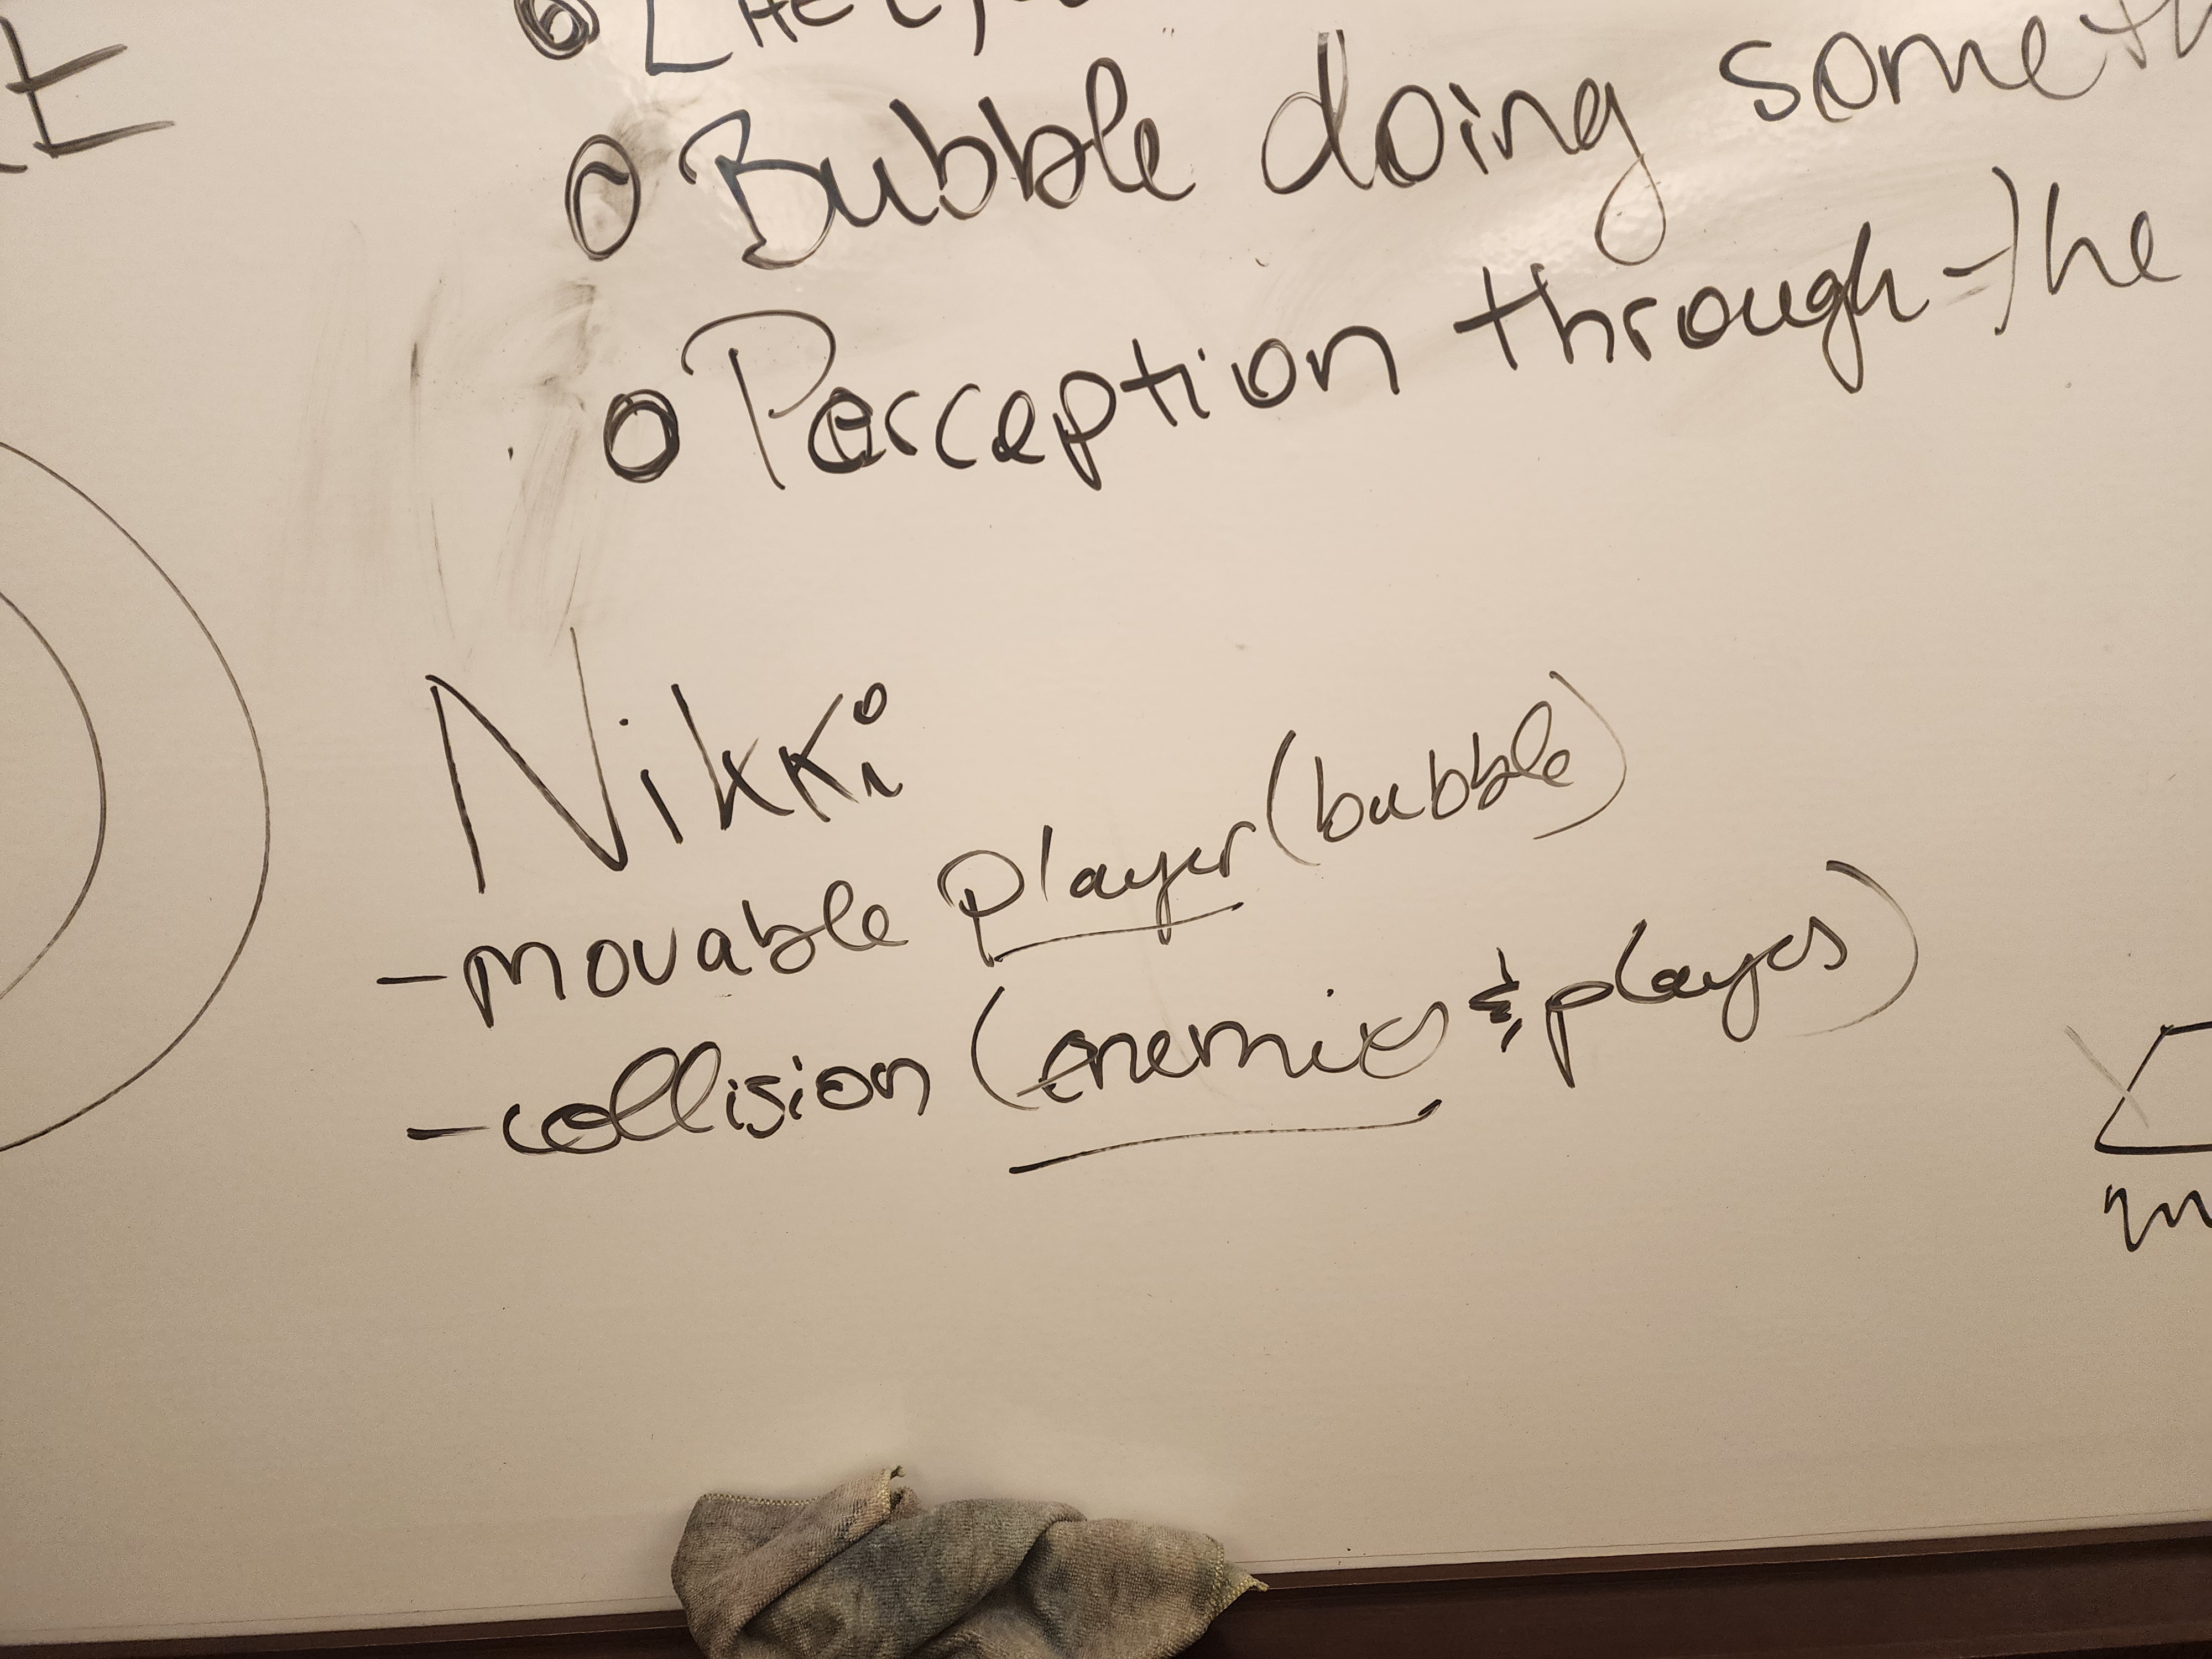 Bubble doing someth
Perception through the
Nikki
- movable player (bubble)
- collision (enemies & players)